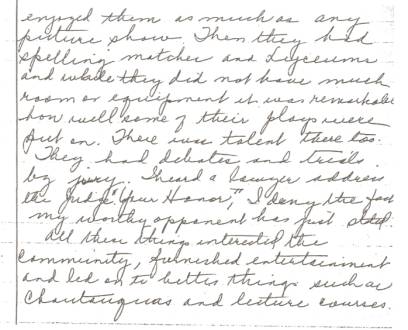 enjoyed them as much as any
picture show. Then they had
spelling matches and Lyceums
and while they did not have much
room or equipment it was remarkable
how well some of their plays were
put on. There was talent there too.
They had debates and trials
by jury. I heard a lawyer address
the Judge "Your Honor," I deny the fact
my worthy opponent has just stated.
All these things interested the
community, furnished entertainment
and led on to better things such as
Chautauquas and lecture courses.